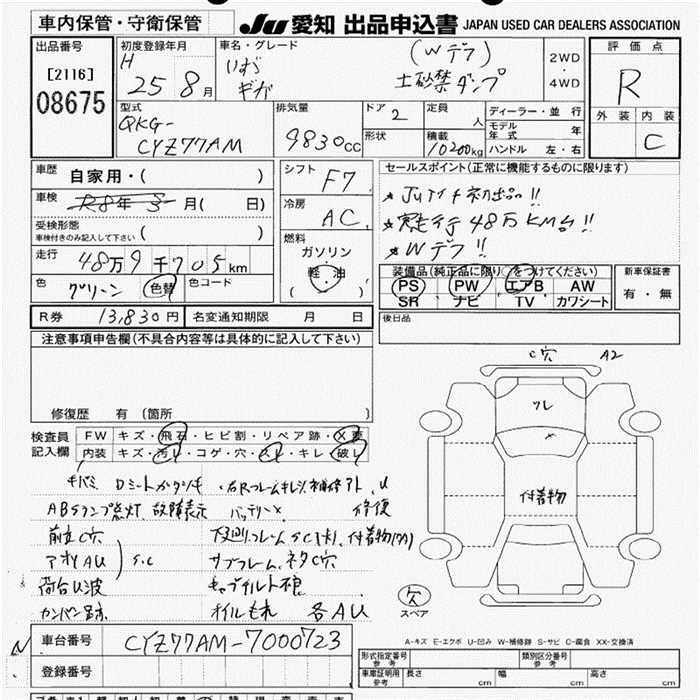 車内保管・守衛保管
JU 愛知 出品申込書 JAPAN USED CAR DEALERS ASSOCIATION
出品番号 初度登録年月 車名・グレード 評価点
[2116] H 25 8月 いすゞ (Wデフ) 2WD・4WD R
08675 ギガ 土砂禁ダンプ
外装 内装
C
型式 排気量 ドア 2 定員 人 ディーラー・並行
QKG-CYZ77AM 9830cc 形状 積載 10200kg モデル年式 年
ハンドル 左・右
車歴 自家用・( )
車検 R8年3月( 日)
受検形態 ( )
車検付きのみ記入して下さい
走行 48万9千705km
色 グリーン 色替 色コード
シフト F7
冷房 AC
燃料 ガソリン 軽・油 ( )
セールスポイント(正常に機能するものに限ります)
★JUアイチ初出品!!
★実走行48万KM台!!
★Wデフ!!
装備品(純正品に限り○をつけてください)
PS PW エアB AW
SR ナビ TV カワシート
新車保証書
有・無
R券 13,830円 名変通知期限 月 日
後日品
注意事項申告欄(不具合内容等は具体的に記入して下さい)
修復歴 有 (箇所 )
検査員記入欄
FW キズ・飛石・ヒビ割・リペア跡・X要
内装 キズ・汚レ・コゲ・穴・スレ・キレ・破レ
キバミ
ABSランプ点灯、故障表示 バッテリーX
前立C穴 下廻りフレームSC(大)、付着物(ワカ)
アオリAU S.C サブフレーム、ネタC穴
荷台U波 キャブチルト不良
カンバン跡 オイルモレ 各AU
C穴 A2
ワレ
付着物
穴
スペア
車台番号 CYZ77AM-7000723
登録番号
A-キズ E-エクボ U-凹み W-補修跡 S-サビ C-腐食 XX-交換済
形式指定番号 参考 類別区分番号 参考
車庫証明用 参考 長さ cm 幅 cm 高さ cm